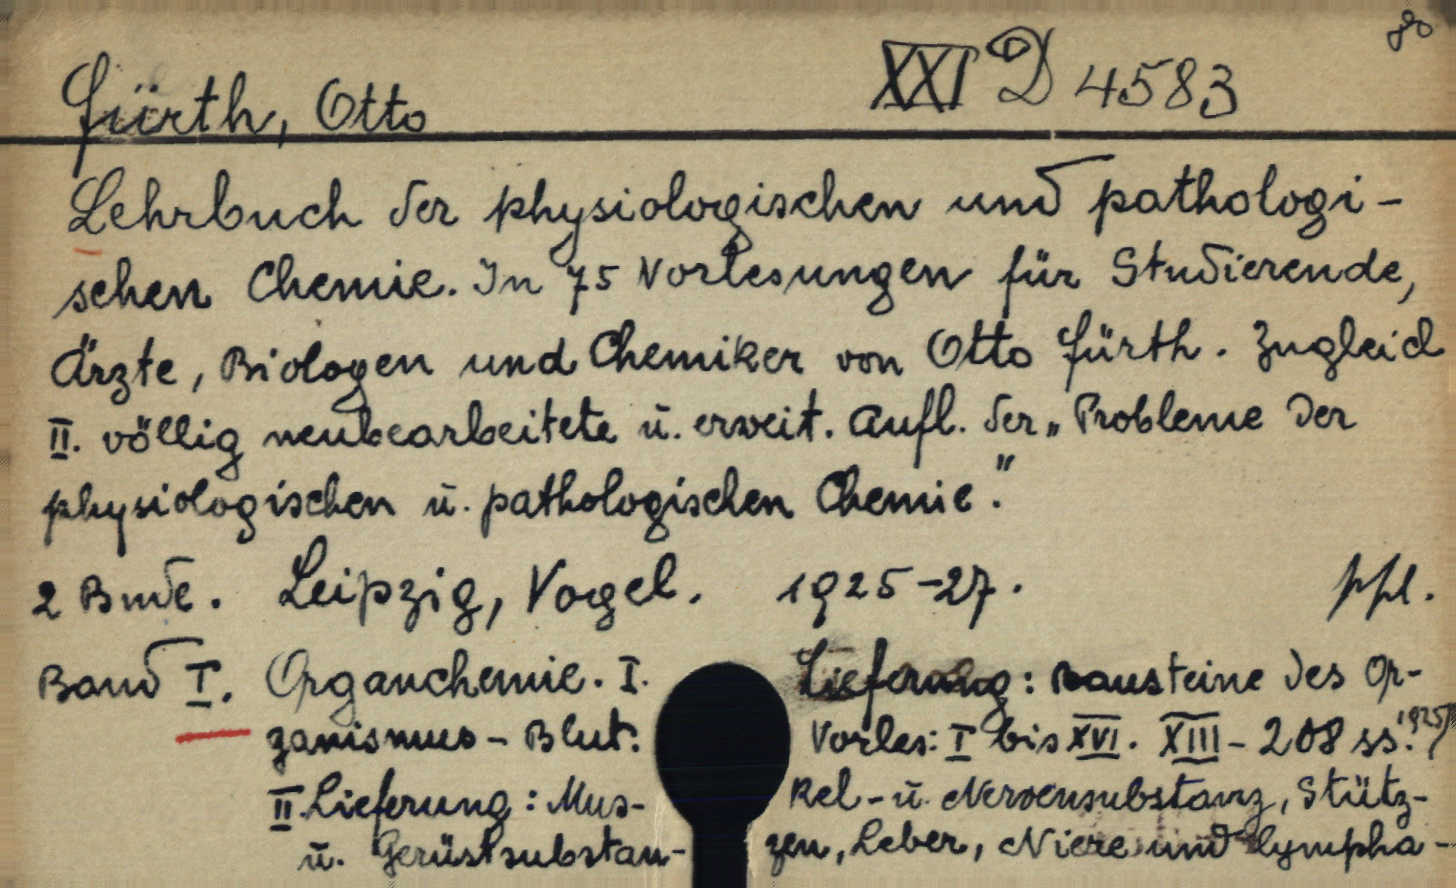 80
Fürth, Otto XXI D 4583
Lehrbuch der physiologischen und pathologi-
schen Chemie. In 75 Vorlesungen für Studierende,
Ärzte, Biologen und Chemiker von Otto Fürth. Zugleich
II. völlig neubearbeitete u. erweit. Aufl. der „Probleme der
physiologischen u. pathologischen Chemie."
2 Bnde. Leipzig, Vogel. 1925-27. ppl.
Band I. Organchemie. I. Lieferung: Bausteine des Or-
ganismus - Blut: Vorles: I bis XVI. XIII - 208 ss. 1925/
II. Lieferung: Mus- kel- u. Nervensubstanz, Stütz-
u. Gerüstsubstan- zen, Leber, Niere und lympha-